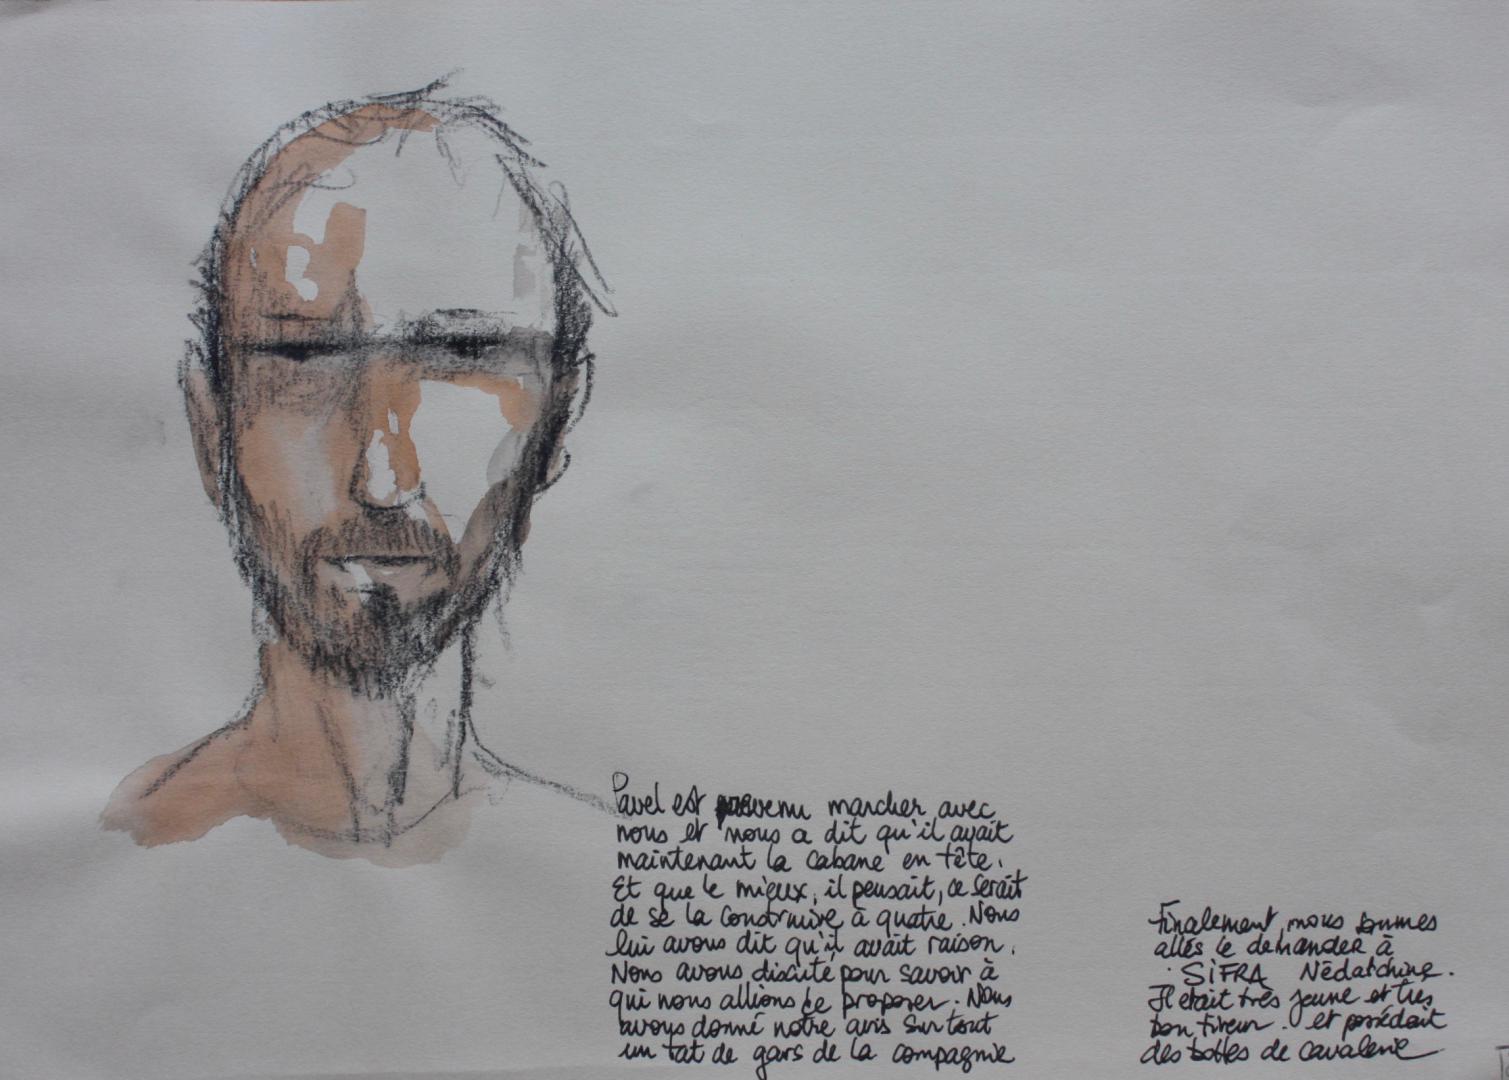 Pavel est revenu marcher avec
nous et nous a dit qu'il avait
maintenant la cabane en tête.
Et que le mieux, il pensait, ce serait
de se la construire à quatre. Nous
lui avons dit qu'il avait raison.
Nous avons discuté pour savoir à
qui nous allions le proposer. Nous
avons donné notre avis sur tout
un tat de gars de la compagnie
Finalement nous sommes
allés le demander à
SIFRA Nédatchine.
Il était très jeune et très
bon tireur. et possédait
des bottes de cavalerie